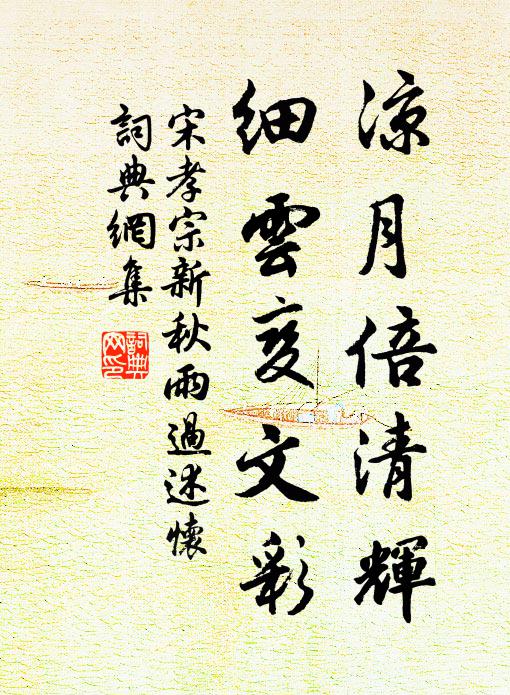 涼月倍清輝
細雲变文彩
宋孝宗新秋雨過述懷
詞典網集
詞典网印